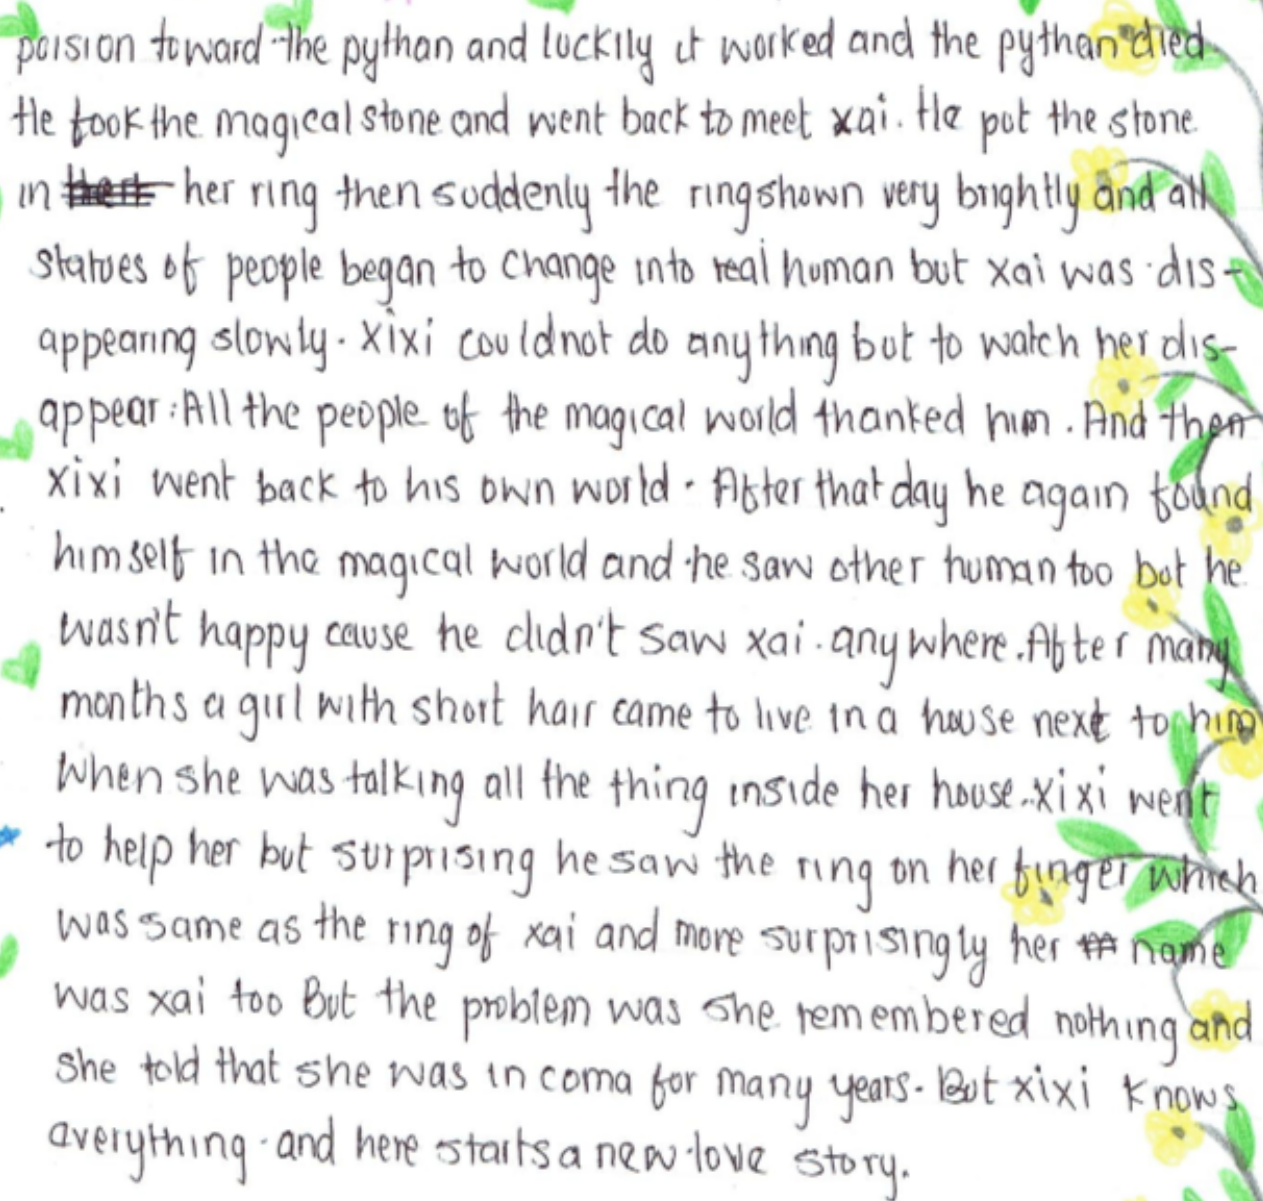 poision toward the pythan and luckily it worked and the pythan died
He took the magical stone and went back to meet xai. He put the stone
in her ring then suddenly the ring shown very brightly and all
statues of people began to change into real human but xai was dis-
appearing slowly. Xixi could not do anything but to watch her dis-
appear. All the people of the magical world thanked him. And then
xixi went back to his own world. After that day he again found
himself in the magical world and he saw other human too but he
wasn't happy cause he didn't saw xai. anywhere. After many
months a girl with short hair came to live in a house next to him
When she was talking all the thing inside her house. Xixi went
to help her but surprising he saw the ring on her finger which
was same as the ring of xai and more surprisingly her name
was xai too But the problem was she remembered nothing and
she told that she was in coma for many years. But xixi knows
averything. and here starts a new love story.